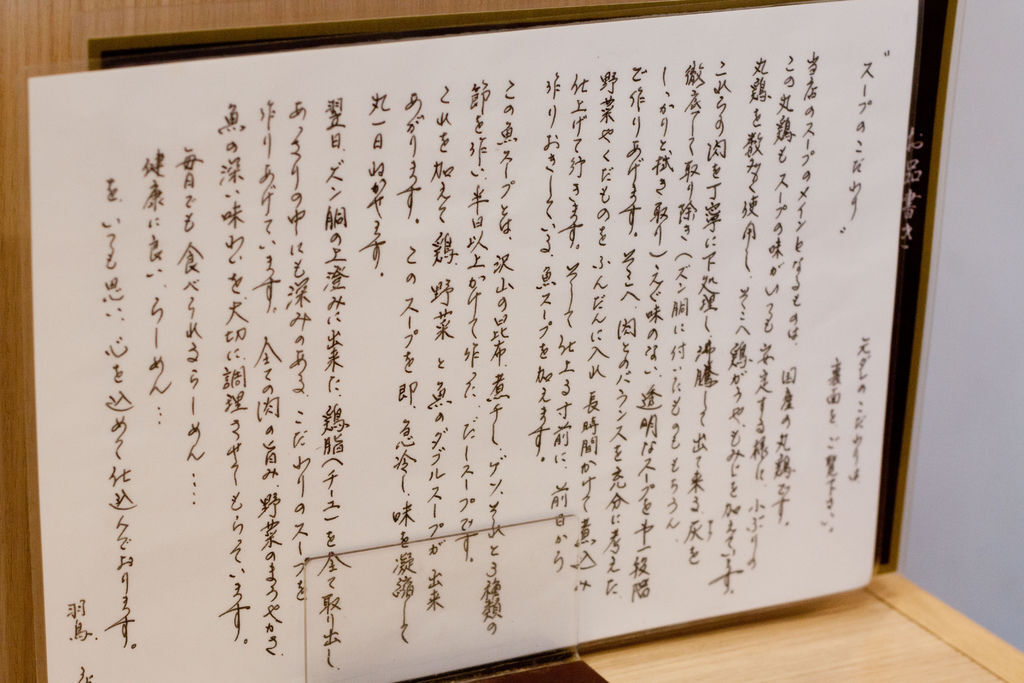 "スープのこだわり"
元ダレのこだわりは
裏面をご覧下さい。
当店のスープのメインとなるものは、国産の丸鶏です。
この丸鶏もスープの味がいつも安定する様に、小ぶりの
丸鶏を数多く使用し、そこへ鶏がらや、もみじを加えています。
これらの肉を丁寧に下処理し、沸騰して出て来る灰を
徹底して取り除き(ズン胴に付いたものももちろん
しっかりと拭き取り)えぐ味のない、透明なスープを第一段階
で作りあげます。そこへ、肉とのバランスを充分に考えた、
野菜やくだものをふんだんに入れ、長時間かけて煮込み
仕上げて行きます。そして仕上る寸前に、前日から
作りおきしている、魚スープを加えます。
この魚スープとは、沢山の昆布、煮干し、ゲンソそれと3種類の
節を使い、半日以上かけて作った、だしスープです。
これを加えて、鶏、野菜と魚のダブルスープが出来
あがります。このスープを即、急冷し、味を凝縮して
丸一日ねかせます。
翌日、ズン胴の上澄みに出来た、鶏脂(チーユ)を全て取り出し
あっさりの中にも深みのある、こだわりのスープを
作りあげています。全ての肉の旨み、野菜のまろやかさ、
魚の深い味わいを大切に、調理させてもらっています。
毎日でも食べられるらーめん....
健康に良い、らーめん...
を、いつも思い、心を込めて仕込んでおります。
羽鳥
お品書き